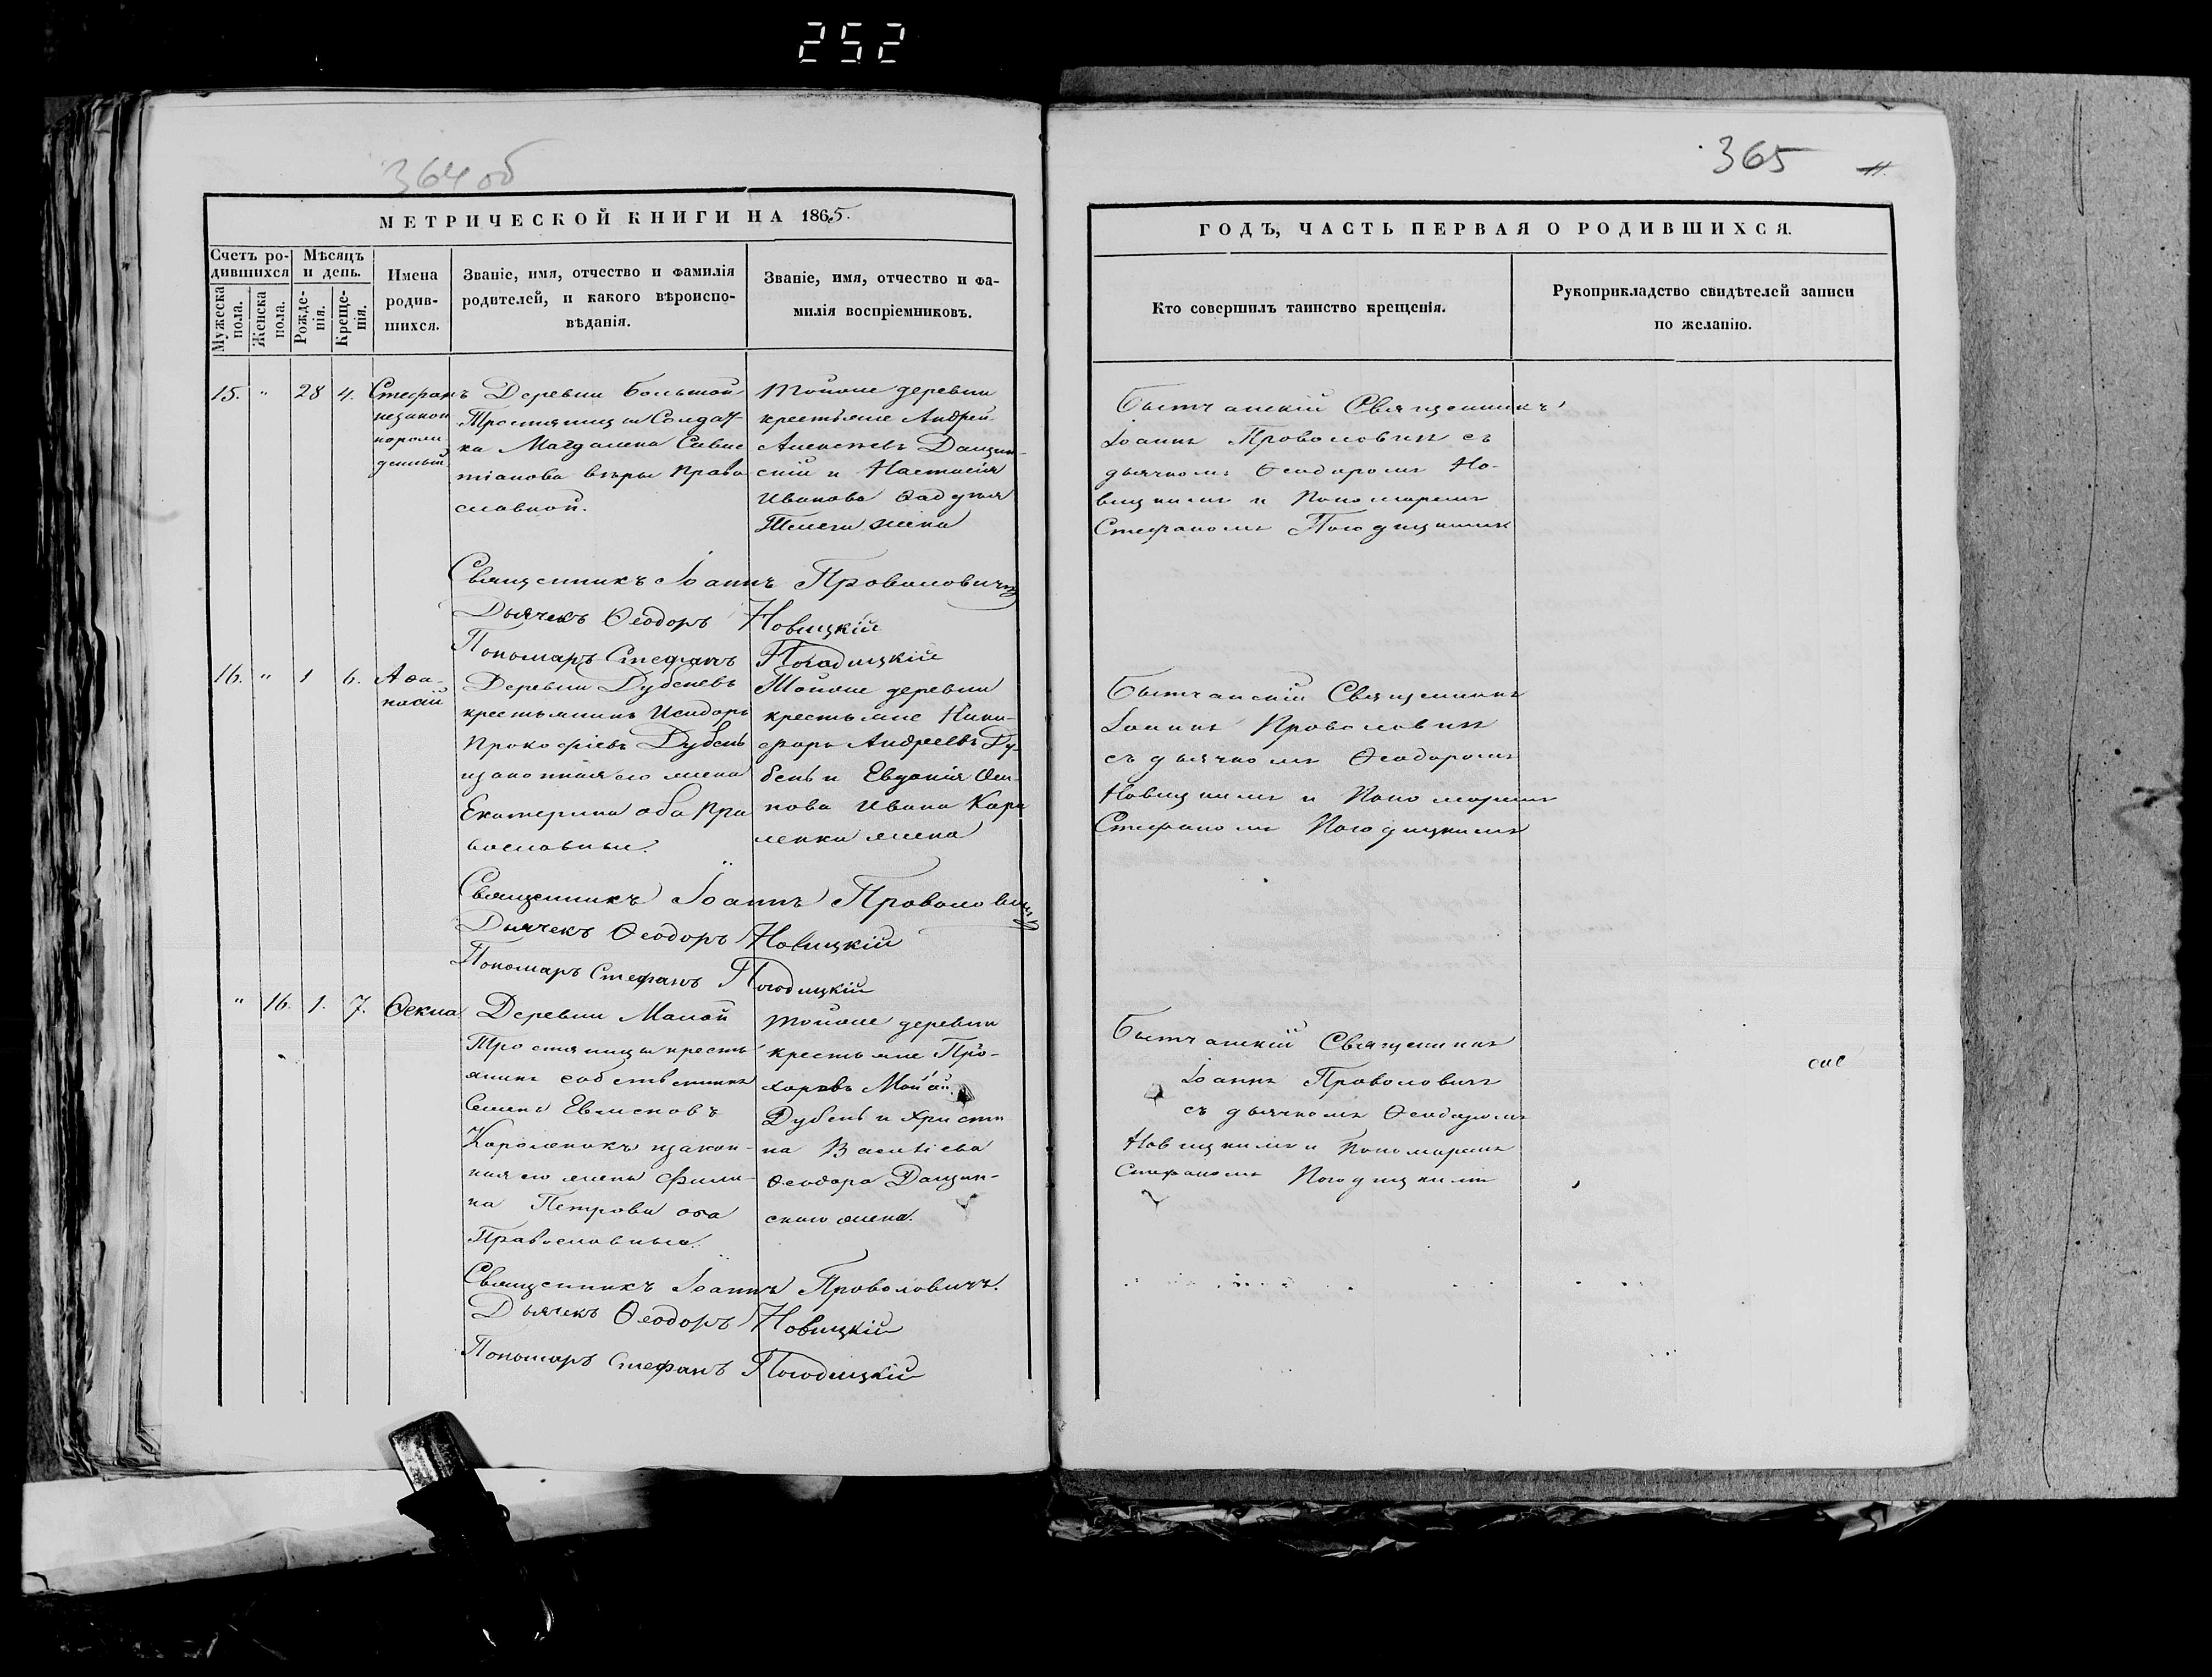 252
364 об
МЕТРИЧЕСКОЙ КНИГИ НА 1865.
Счетъ родившихся
Мѣсяцъ и день.
Мужеска пола.
Женска пола.
Рожденія.
Крещенія.
Имена родившихся.
Званіе, имя, отчество и фамилія
родителей, и какого вѣроиспо-
вѣданія.
Званіе, имя, отчество и фа-
милія воспріемниковъ.
15. " 28 4. Стефанъ
незакон
норож
денный
Деревни Большой
Тростяницы Солдат
ка Магдалена Савас
тіанова вѣры Право
славной.
Тойже деревни
крестьяне Андрей
Алексѣевъ Данцев-
скій и Настасія
Иванова Фаддея
жена
Священникъ Іоаннъ Проволовичъ
Дьячекъ Ѳеодоръ Новицкій
Пономарь Стефанъ Погодицкій
16. " 1 6. Аѳа-
насій
Деревни Дубеневъ
крестьянинъ Исидоръ
Прокофіевъ Дубень
изаконная его жена
Екатерина оба Пра
вославныи.
Тойже деревни
крестьяне Ники-
форъ Андреевъ Ду-
бень и Евдокія Оси-
пова Ивана Каро
ленки жена
Священникъ Іоаннъ Проволовичъ
Дьячекъ Ѳеодоръ Новицкій
Пономарь Стефанъ Погодицкій
" 16. 1. 7. Ѳекла
Деревни Малой
Тростяницы кресть
янинъ собственникъ
Семенъ
Короленокъ изакон-
ная его жена Фили-
на Петрова оба
Православныи.
Тойже деревни
крестьяне Про-
хоровъ
Дубень и Христи
на Василіева
Ѳеодора Данцев-
скаго жена.
Священникъ Іоаннъ Проволовичъ.
Дьячекъ Ѳеодоръ Новицкій
Пономарь Стефанъ Погодицкій
365
11.
ГОДЪ, ЧАСТЬ ПЕРВАЯ О РОДИВШИХСЯ.
Кто совершилъ таинство крещенія.
Рукоприкладство свидѣтелей записи
по желанію.
Бытчанскій Священникъ
Іоаннъ Проволовичъ съ
дьячкомъ Ѳеодоромъ Но-
вицкимъ и Пономаремъ
Стефаномъ Погодицкимъ
Бытчанскій Священникъ
Іоаннъ Проволовичъ
съ дьячкомъ Ѳеодоромъ
Новицкимъ и Пономаремъ
Стефаномъ Погодицкимъ
Бытчанскій Священникъ
Іоаннъ Проволовичъ
съ дьячкомъ Ѳеодоромъ
Новицкимъ и Пономаремъ
Стефаномъ Погодицкимъ